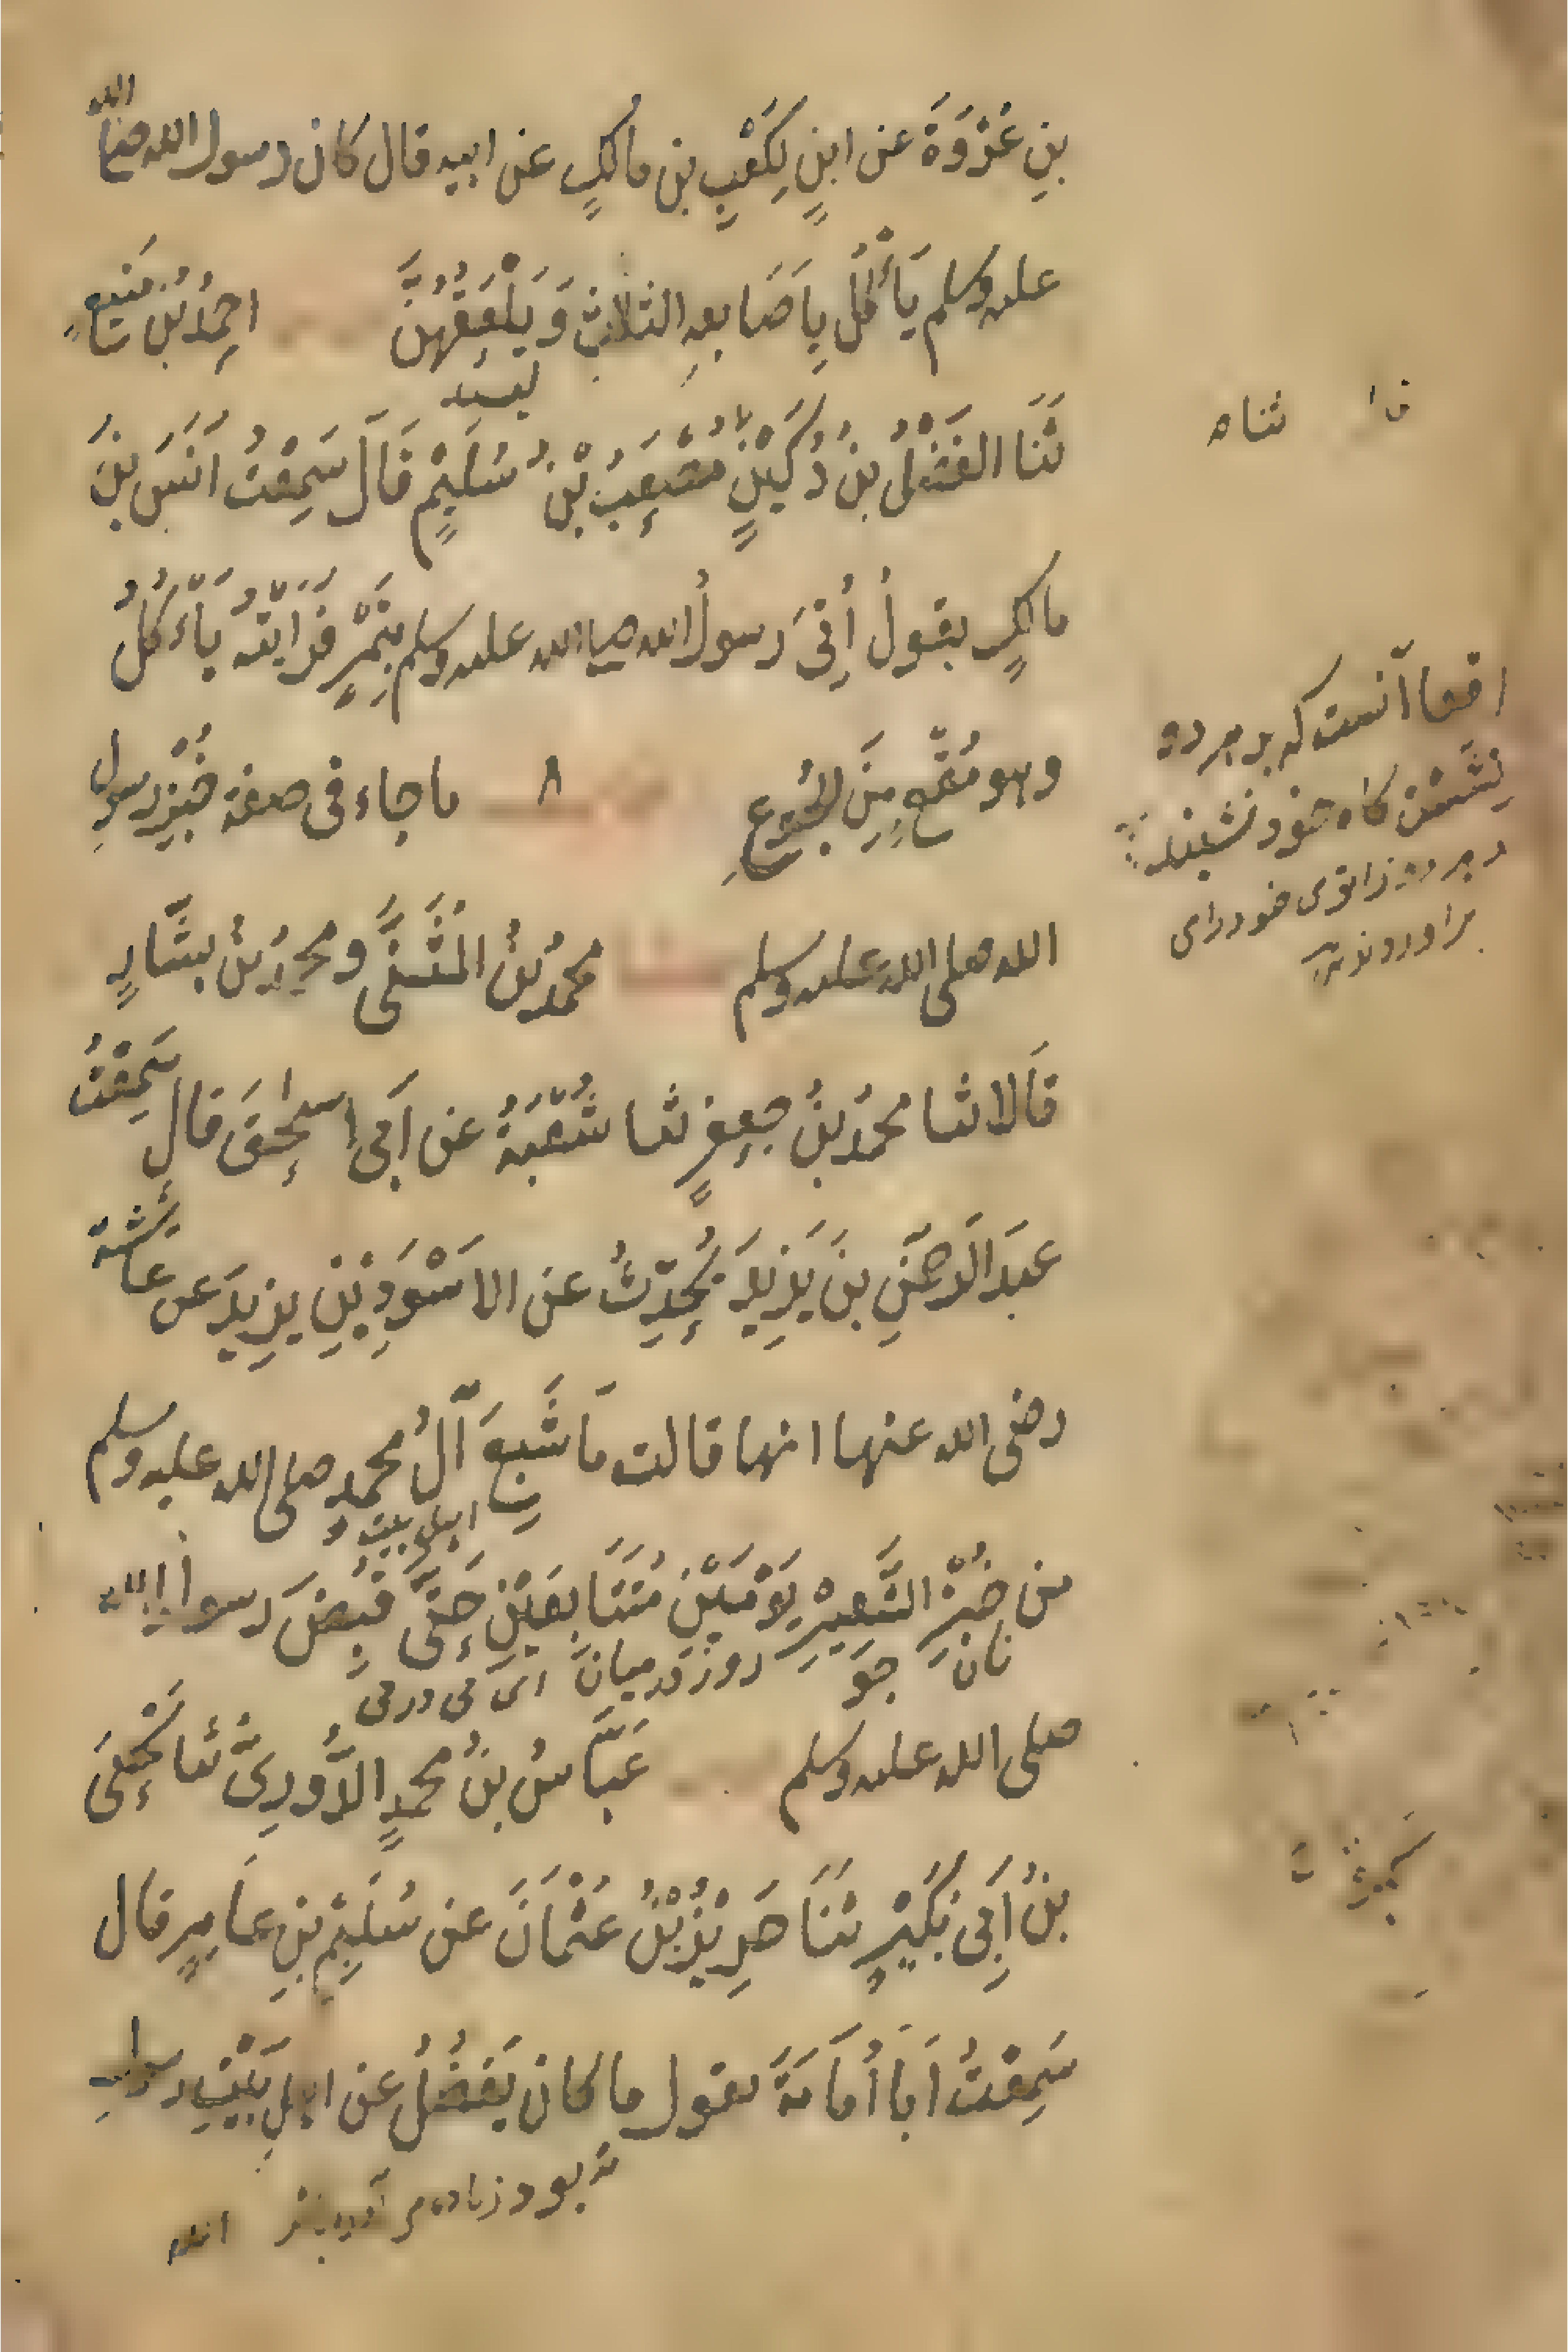 بنِ عُرْوَةَ عن ابنٍ لِكَعْبِ بنِ مالكٍ عن ابيه قال كان رسول الله صلى الله
عليه وسلم يَأْكُلُ بِاَصَابعِهِ الثلاثِ وَيَلْعَقُهُنَّ احمدُ بنُ مَنيعٍ
ليسيد
ثَنَا الفَضْلُ بنُ دُكَيْنٍ ثنا مُصْعَبُ بْنُ سُلَيْمٍ قَالَ سَمِعْتُ اَنَسَ بنَ
مالكٍ يقولُ أُتِىَ رسولُ الله صلى الله عليه وسلم بِتَمْرٍ فَرَاَيْتُهُ يَأْكُلُ
وهو مُقْعٍ مِنَ الجُوعِ ٨ ما جاء فى صفة خُبْزِ رسولِ
الله صلى الله عليه وسلم محمدُ بْنُ المُثَنَّى ومحمدُ بْنُ بشَّارٍ
قَالا ثنا محمدُ بنُ جعفرٍ ثنا شُعْبَةُ عن اَبِى اِسحٰقَ قال سَمِعْتُ
عبدَ الرَّحمٰنِ بنَ يَزِيْدَ يُحَدِّثُ عن الاَسْوَدِ بْنِ يزِيدَ عن عائشة
رضى الله عنها انها قالت مَا شَبِعَ آلُ محمدٍ صلى الله عليه وسلم
اهل بيت
من خُبْزِ الشَّعِيْرِ يَوْمَيْنِ مُتَتَابِعَيْنِ حَتَّى قُبِضَ رسول الله
نان جو دو روز در ميان
صلى الله عليه وسلم عَبَّاسُ بنُ محمدٍ الدُّورِىُّ ثنا يَحْيَى
بنُ اَبِى بُكَيْرٍ ثَنَا حَرِيْزُ بْنُ عُثْمَانَ عن سُلَيْمِ بنِ عَامِرٍ قال
سَمِعْتُ اَبَا اُمَامَةَ يقول ما كان يَفْضُلُ عن اهلِ بَيْتِ رسولِ
نه بود زياده
ثناه
اقعا آنست كه بر هر دو
خود نشينند
هر دو زانوى خود راى